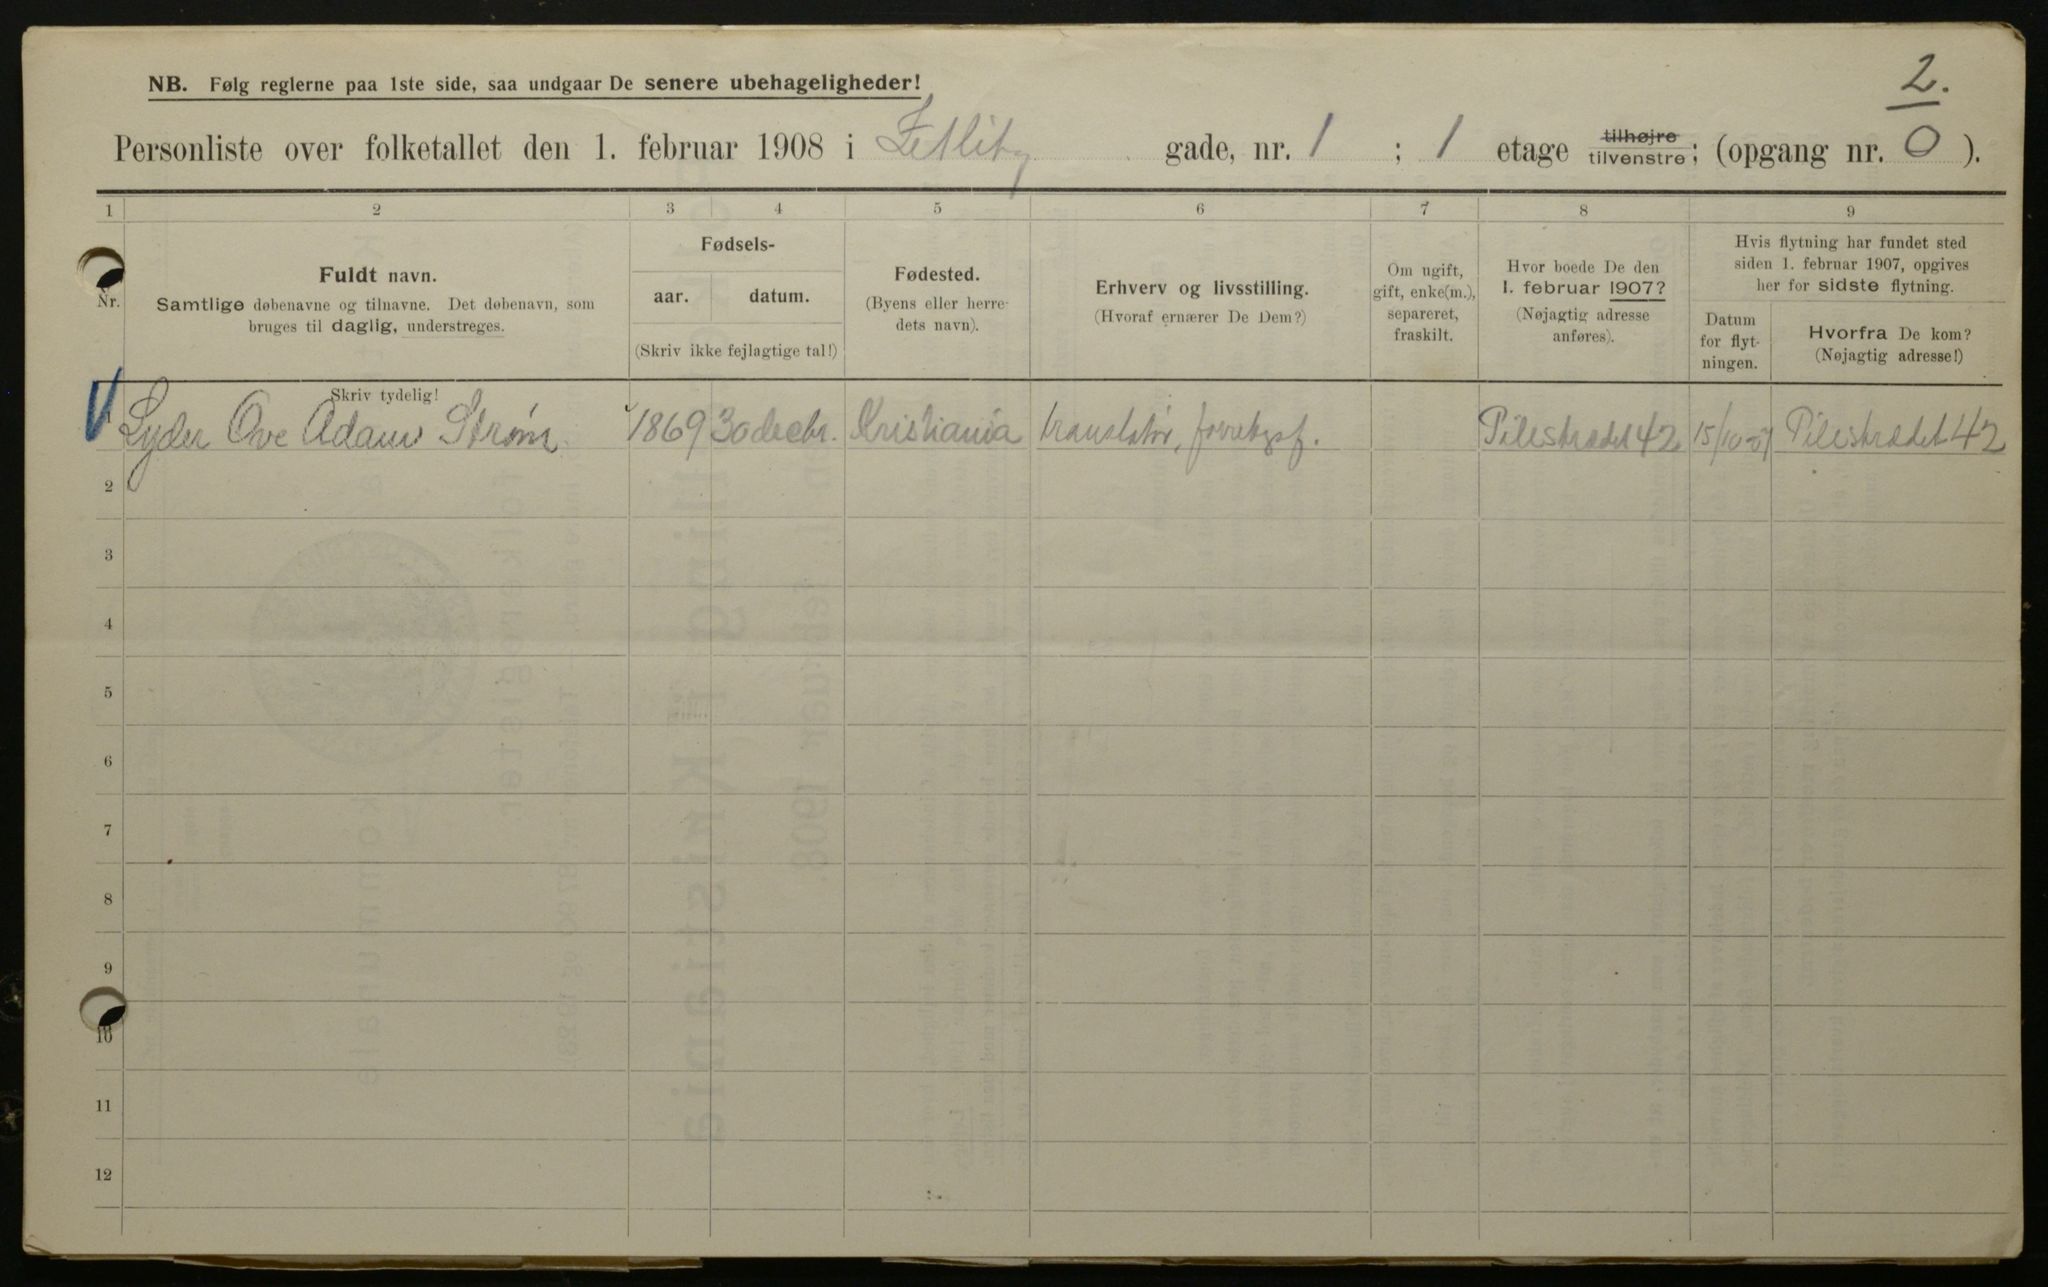 2.
NB. Følg reglerne paa 1ste side, saa undgaar De senere ubehageligheder!
Personliste over folketallet den 1. februar 1908 i Zetlitz gade, nr. 1 ; 1 etage tilhøjre tilvenstre; (opgang nr. 0 ).
1 2 3 4 5 6 7 8 9
Nr.
Fuldt navn.
Samtlige døbenavne og tilnavne. Det døbenavn, som
bruges til daglig, understreges.
Skriv tydelig!
Fødsels-
aar. datum.
(Skriv ikke fejlagtige tal!)
Fødested.
(Byens eller herre-
dets navn).
Erhverv og livsstilling.
(Hvoraf ernærer De Dem?)
Om ugift,
gift, enke(m.),
separeret,
fraskilt.
Hvor boede De den
1. februar 1907?
(Nøjagtig adresse
anføres).
Hvis flytning har fundet sted
siden 1. februar 1907, opgives
her for sidste flytning.
Datum
for flyt-
ningen.
Hvorfra De kom?
(Nøjagtig adresse!)
Lyder Ove Adam Strøm 1869 30 decbr. Kristiania translatør, Pilestrædet 42 15/10-07 Pilestrædet 42
2
3
4
5
6
7
8
9
10
11
12